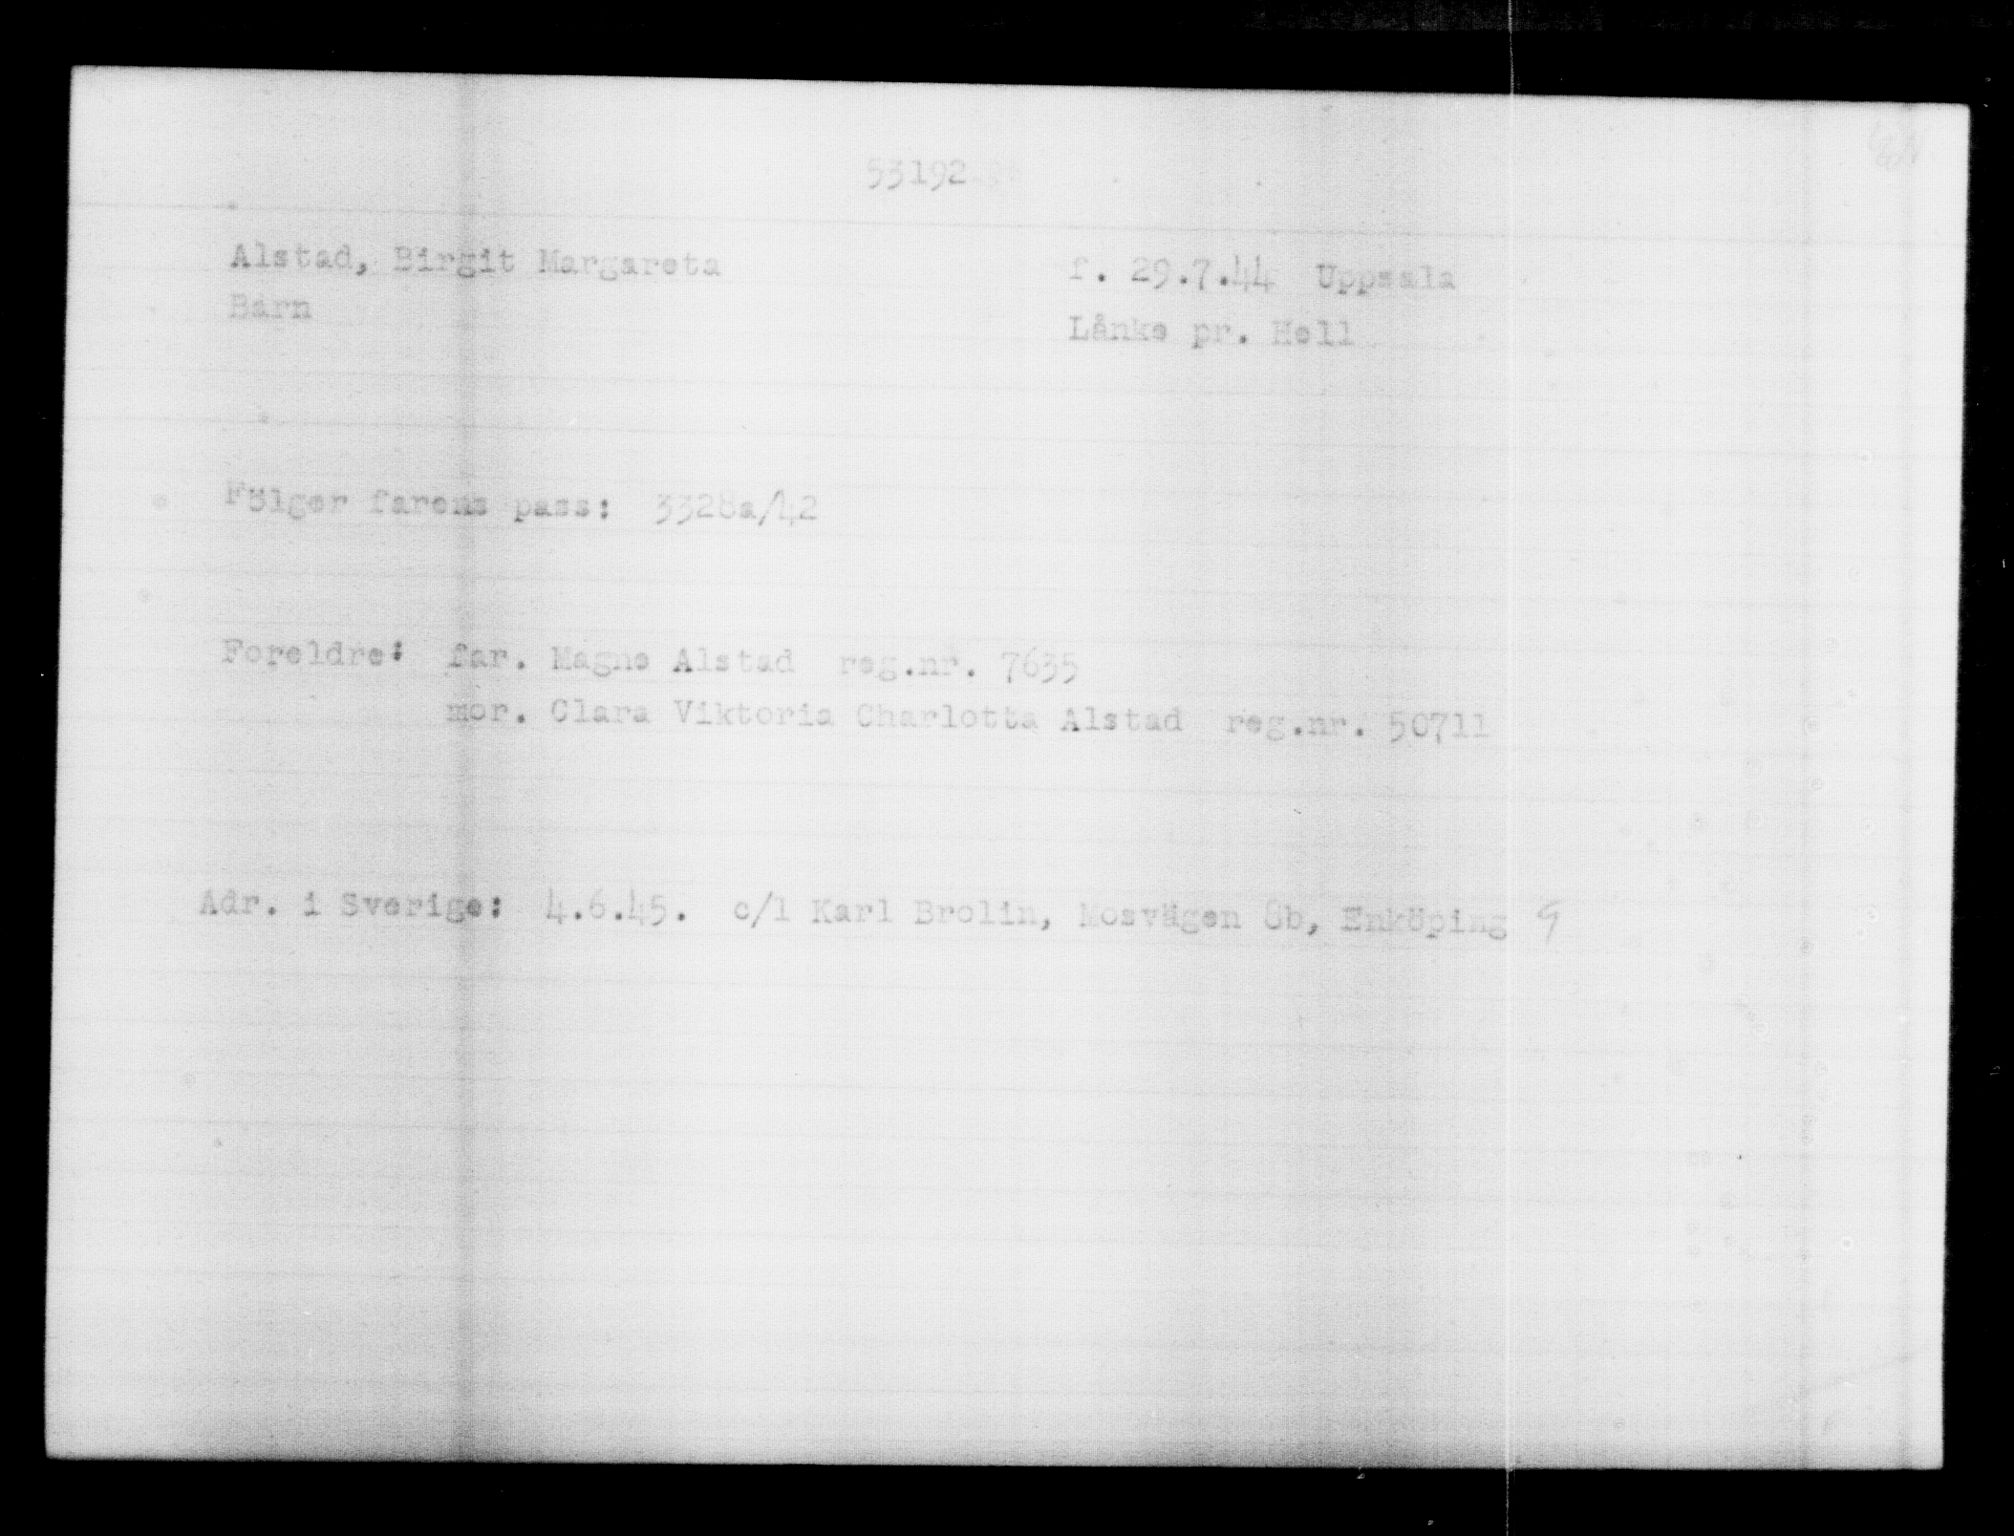 53192
Alstad, Birgit Margareta f. 29.7.44 Uppsala
Barn Lånke pr. Hell
Fölger farens pass: 3328a/42
Foreldre: far. Magne Alstad reg.nr. 7635
mor. Clara Viktoria Charlotta Alstad reg.nr. 50711
Adr. i Sverige: 4.6.45. c/l Karl Brolin, Mosvägen 8b, Enköping